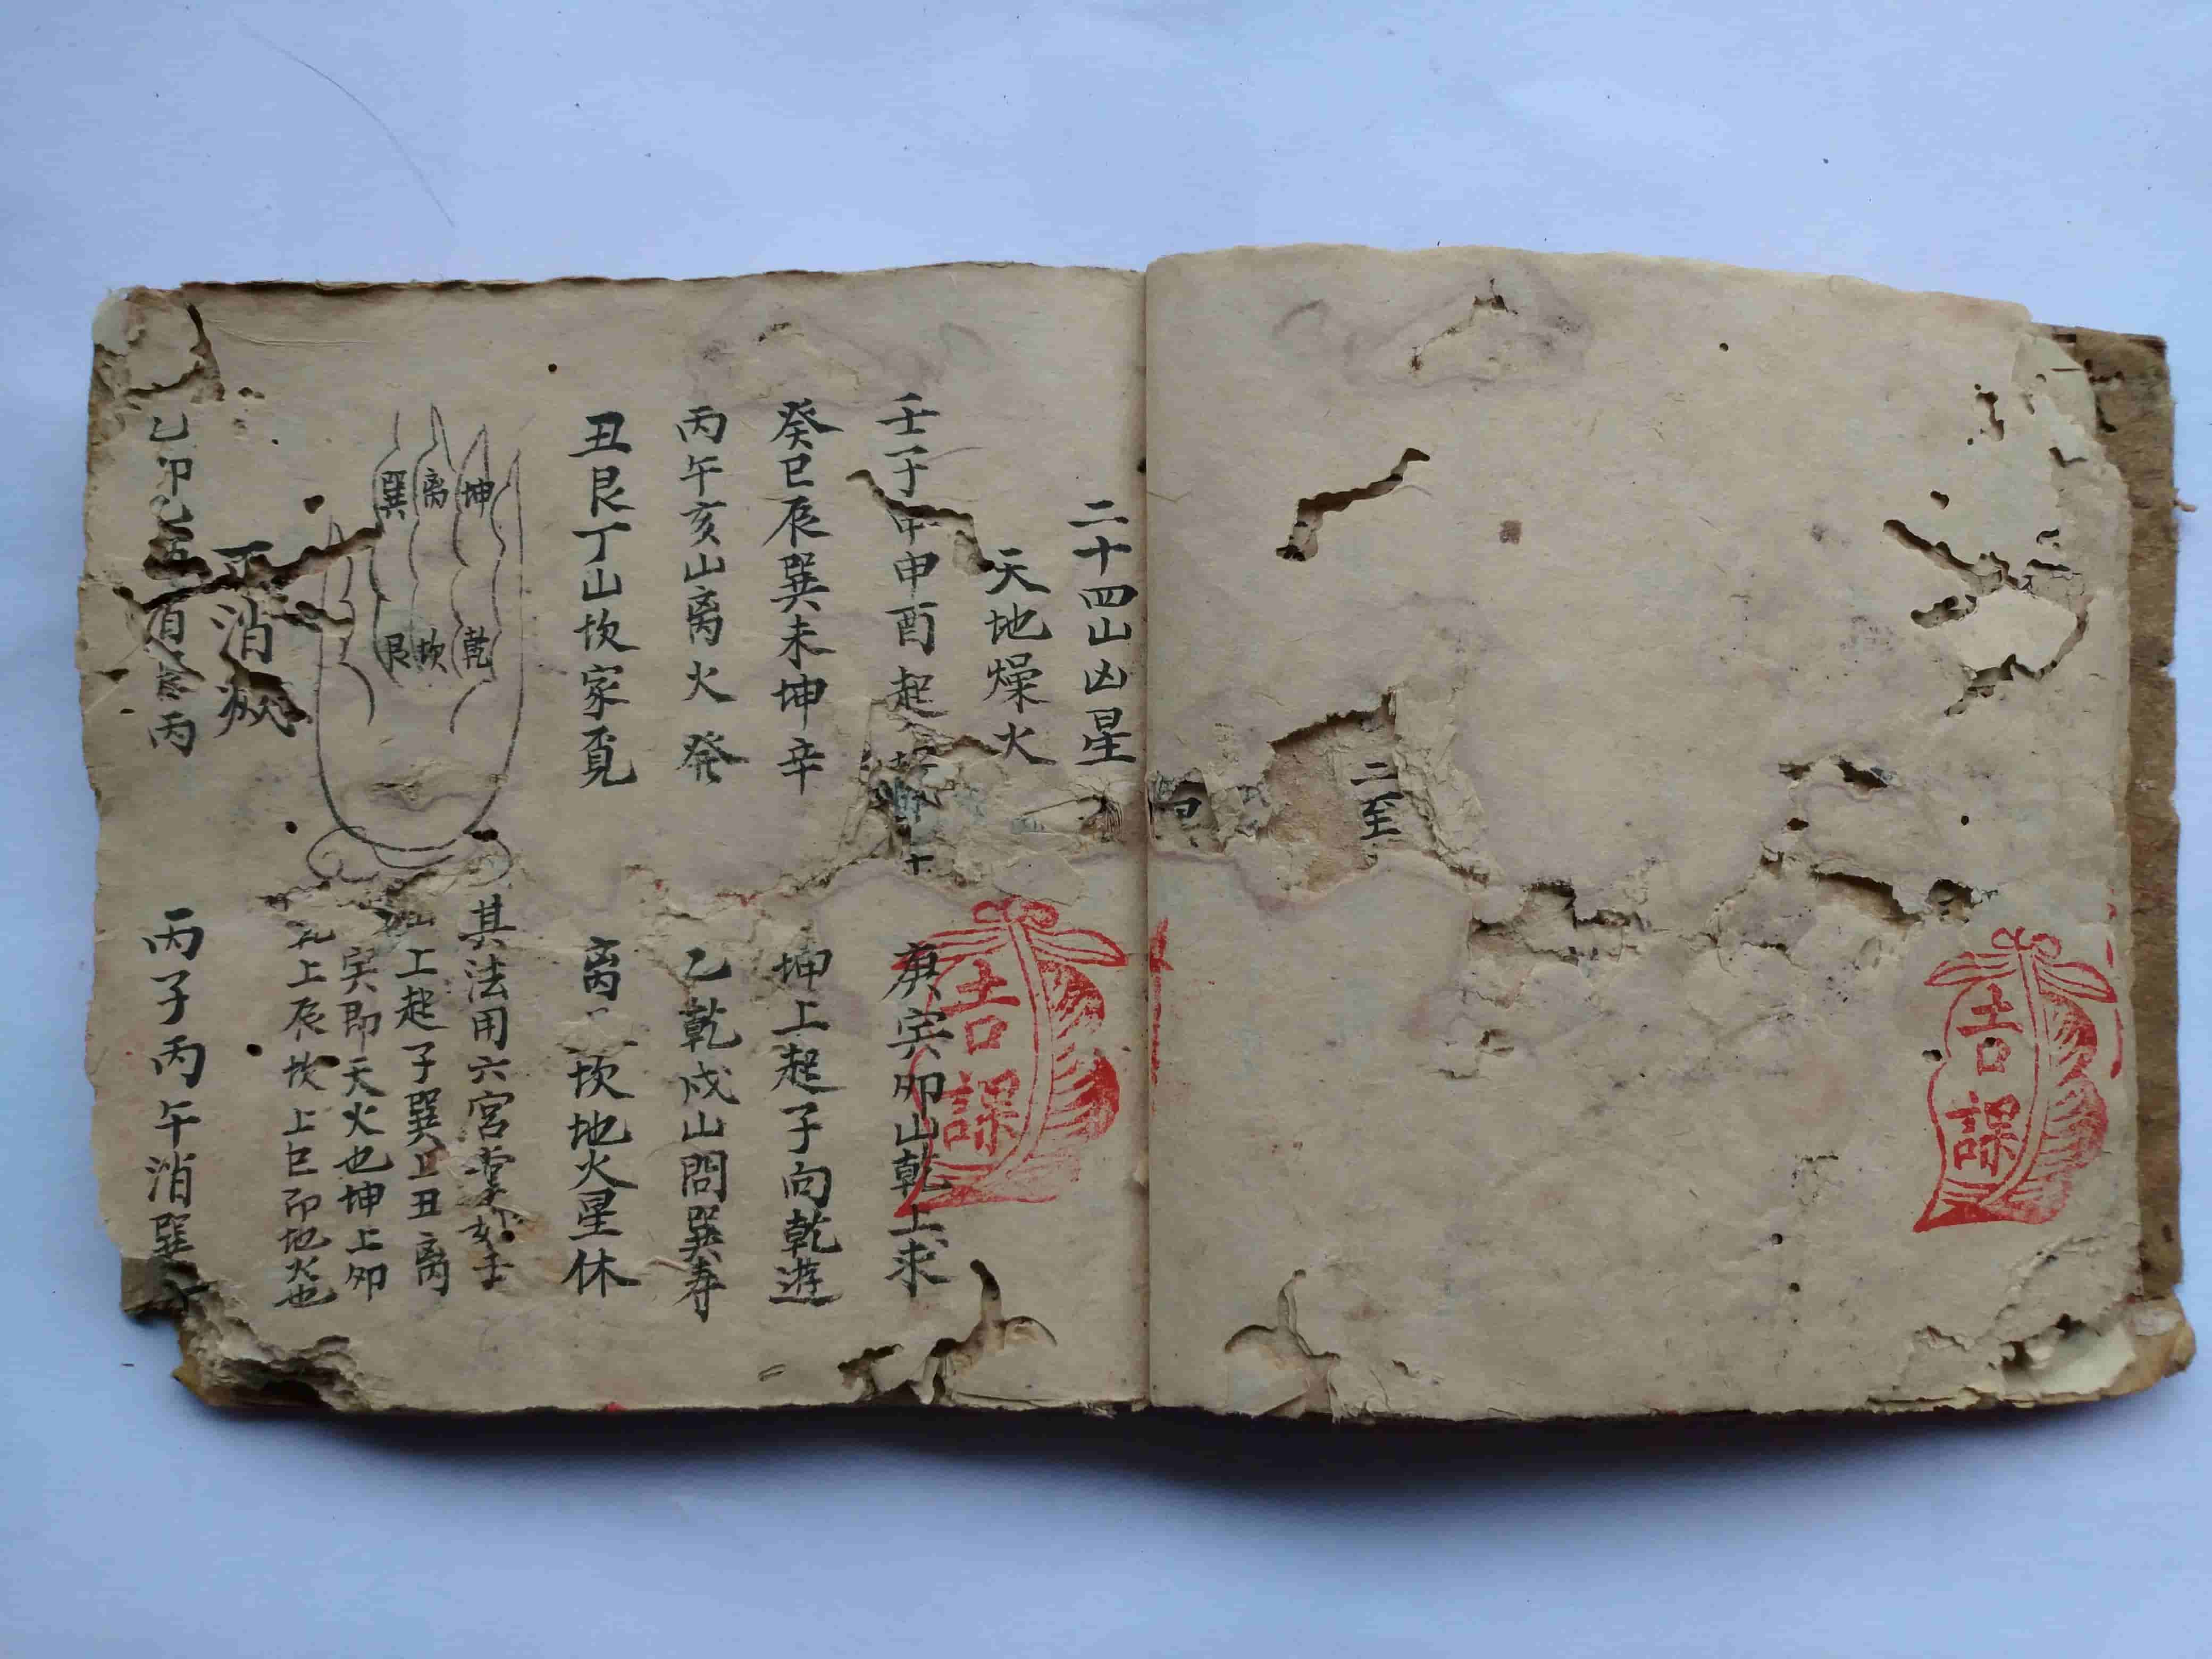 二至
吉課
二十四山凶星
天地燥火
壬子
申酉起
庚寅卯山乾上求
癸巳辰巽未坤辛
坤上起子向乾遊
丙午亥山离火發
乙乾戍山問巽寿
丑艮丁山坎家覓
离
坎地火星休
巽离坤
艮坎乾
其法用六宮掌如
上起子巽上丑离
寅即天火也坤上卯
上辰坎上巳即地火也
消
乙卯
丙
丙子丙午消巽
吉課